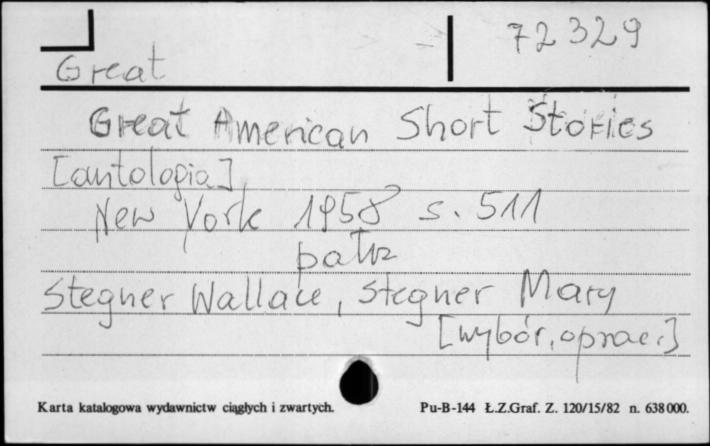 72329
Great
Great American Short Stories
[antologia]
New York 1958 s. 511
patrz
Stegner Wallace, Stegner Mary
[wybór, oprac.]
Karta katalogowa wydawnictw ciągłych i zwartych.
Pu-B-144 Ł.Z.Graf. Z. 120/15/82 n. 638000.